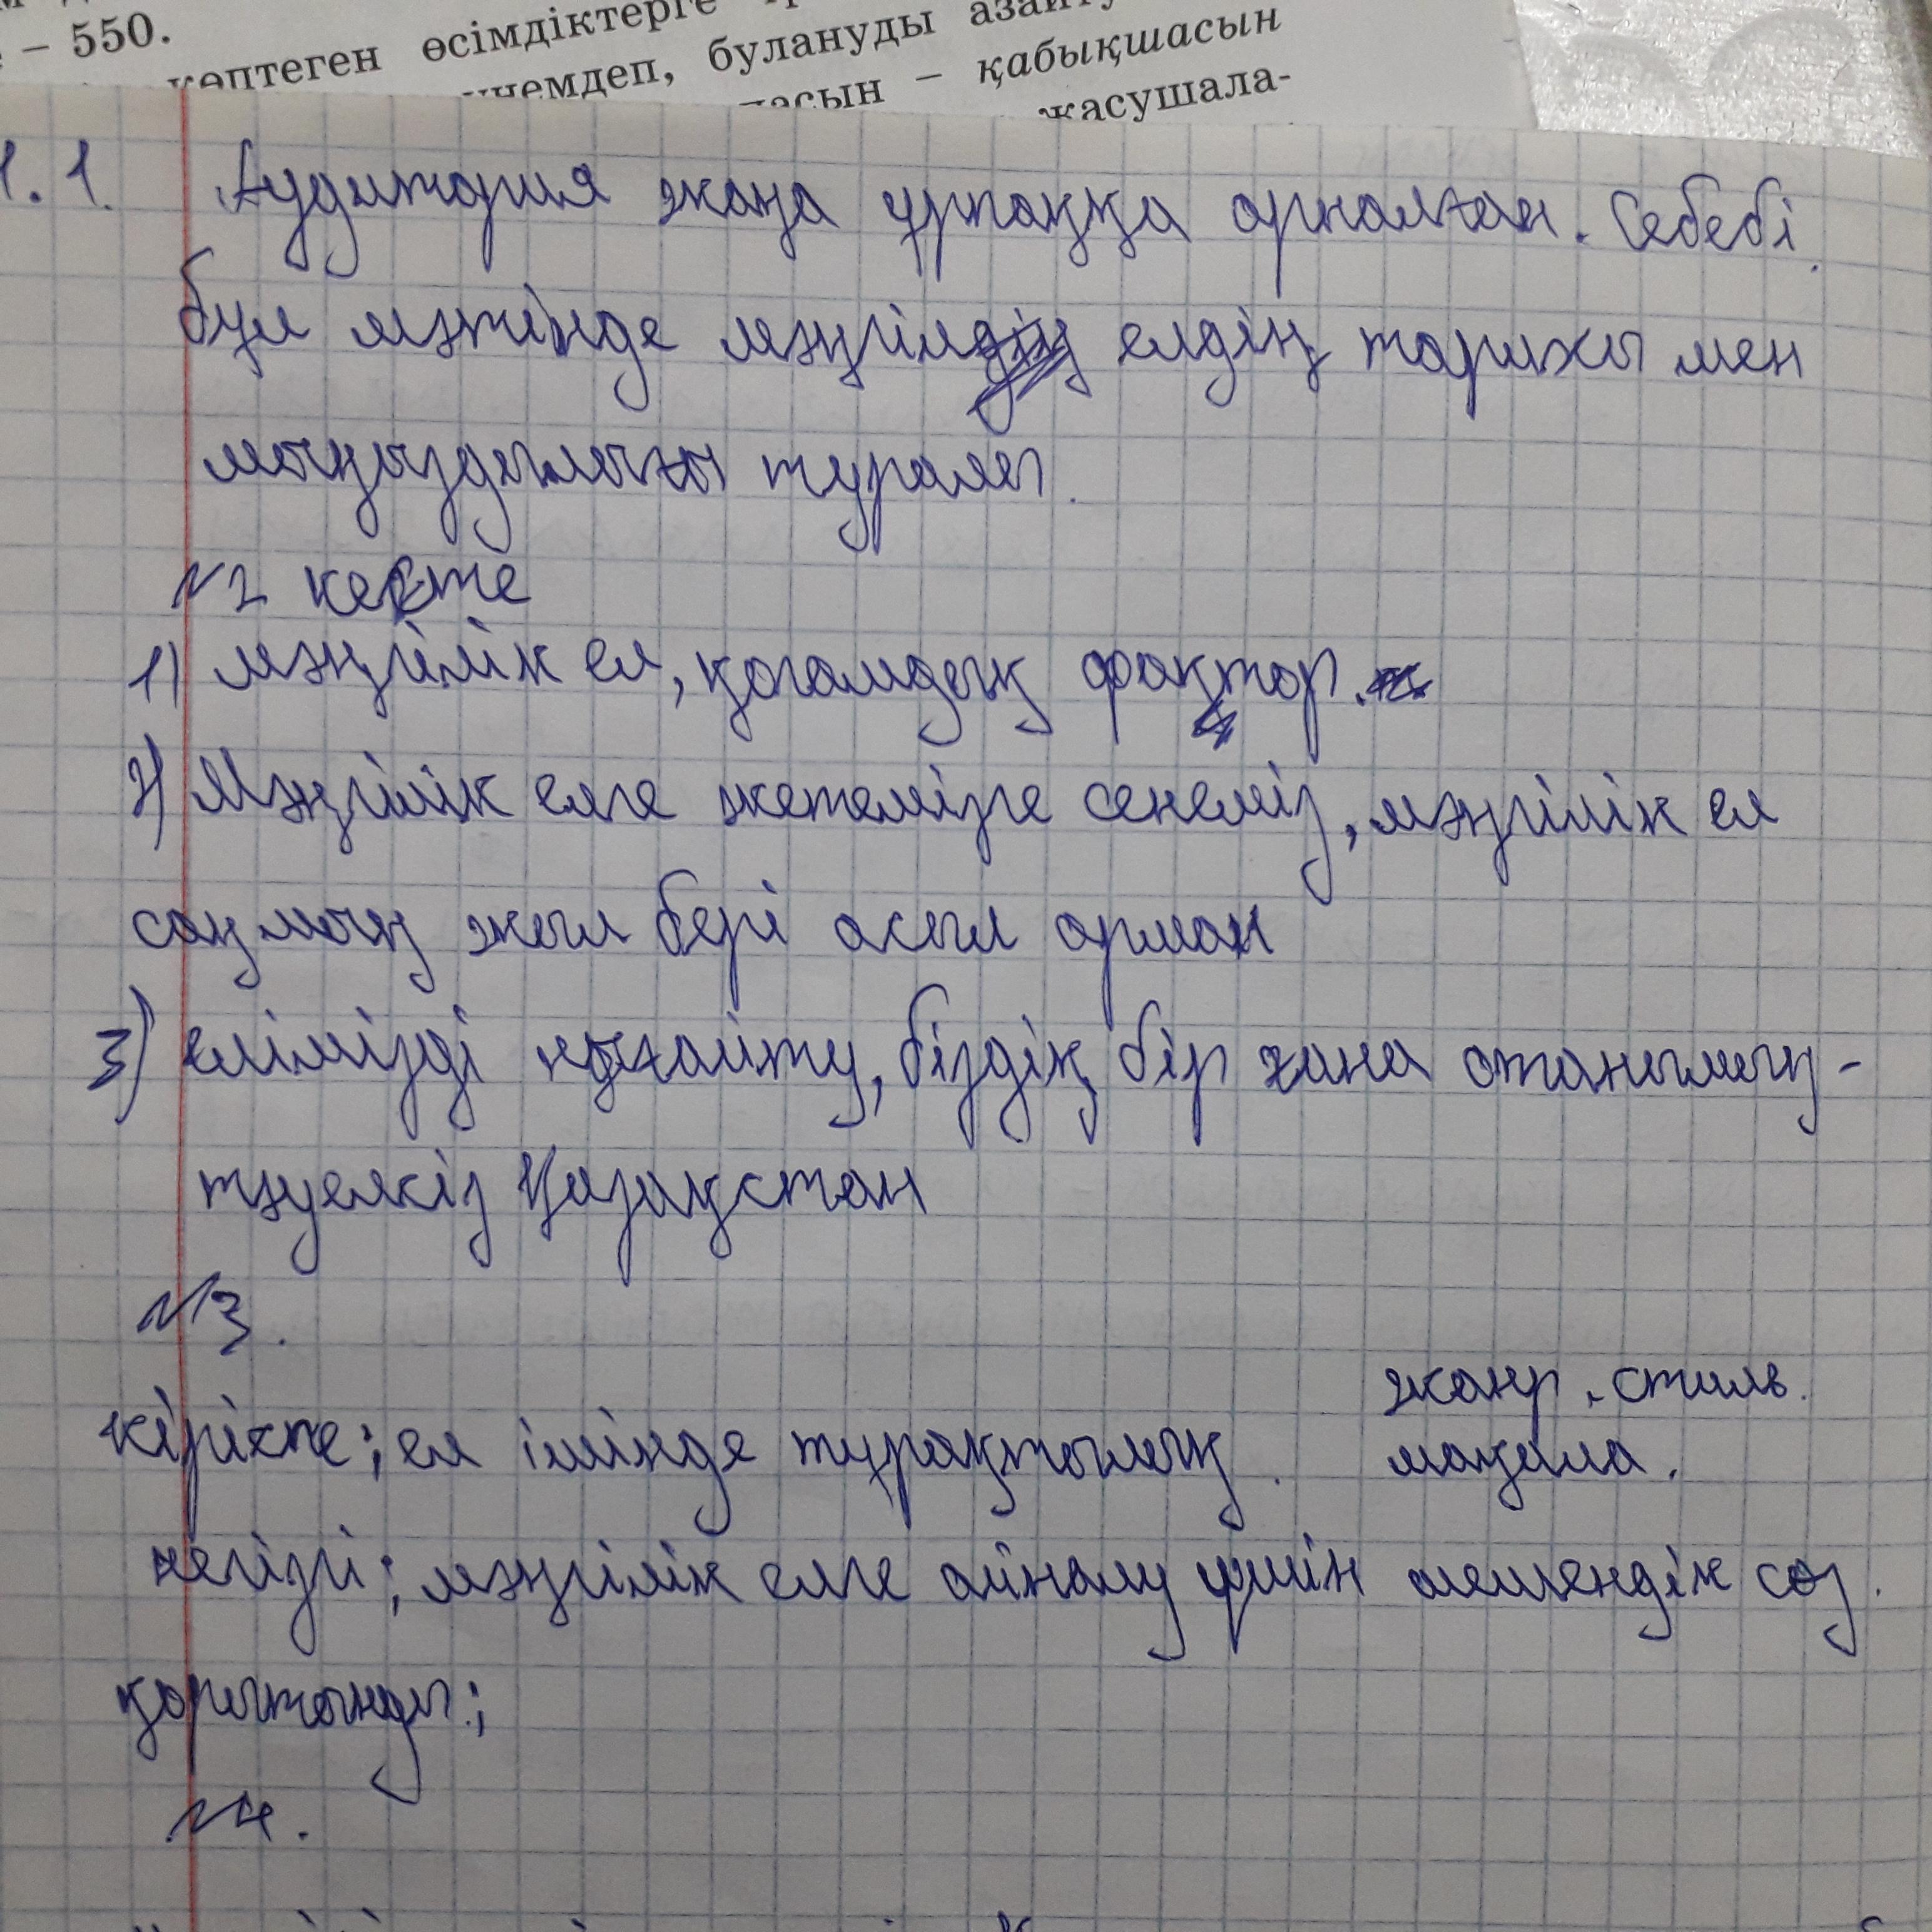 – 550.
көптеген өсімдіктерге
үнемдеп, булануды азайту
қабықшасын
жасушала-
1.1. Аудитория жаңа ұрпаққа арналған. Себебі
бұл мәтінде мәңгілдің елдің тарихы мен
маңыздылығы туралы.
N2 кесте
1) мәңгілік ел, қоғамдық фактор.
2) Мәңгілік елге жетемізге сенеміз, мәңгілік ел
сан мың жыл бері асыл арман
3) елімізді нығайту, біздің бір ғана отанымыз -
тәуелсіз Қазақстан
N3.
жанр, стиль.
кіріспе; ел ішінде тұрақтылық. мақала.
негізгі; мәңгілік елге айналу үшін шешендік сөз.
қорытынды;
N4.